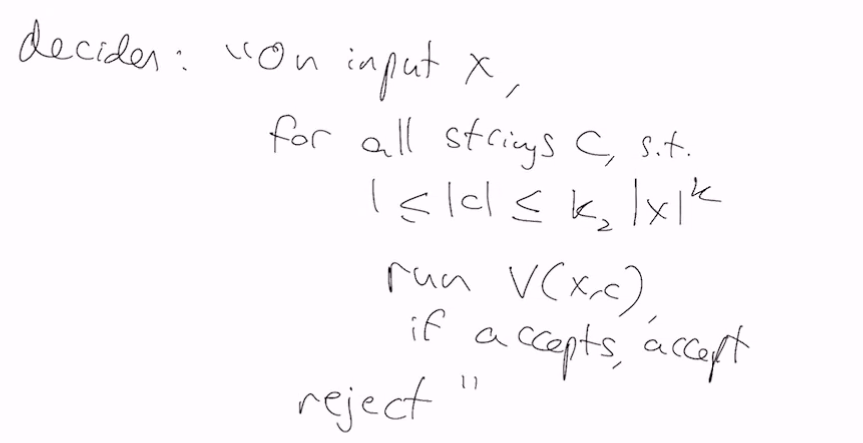 decider: "On input x,
for all strings c, s.t.
1 ≤ |c| ≤ k₂ |x|ᵏ
run V(x,c),
if accepts, accept
reject"